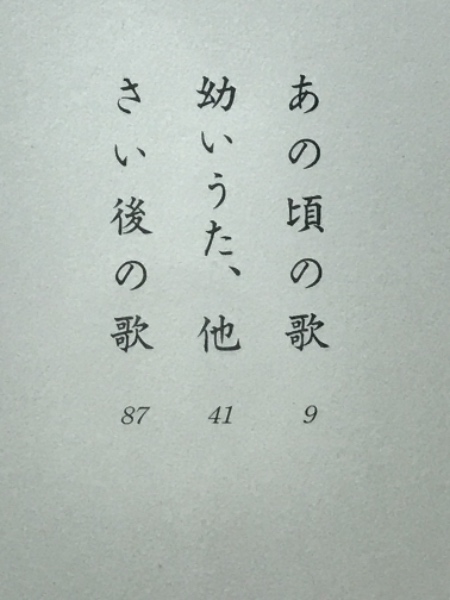 あの頃の歌 9
幼いうた、他 41
さい後の歌 87